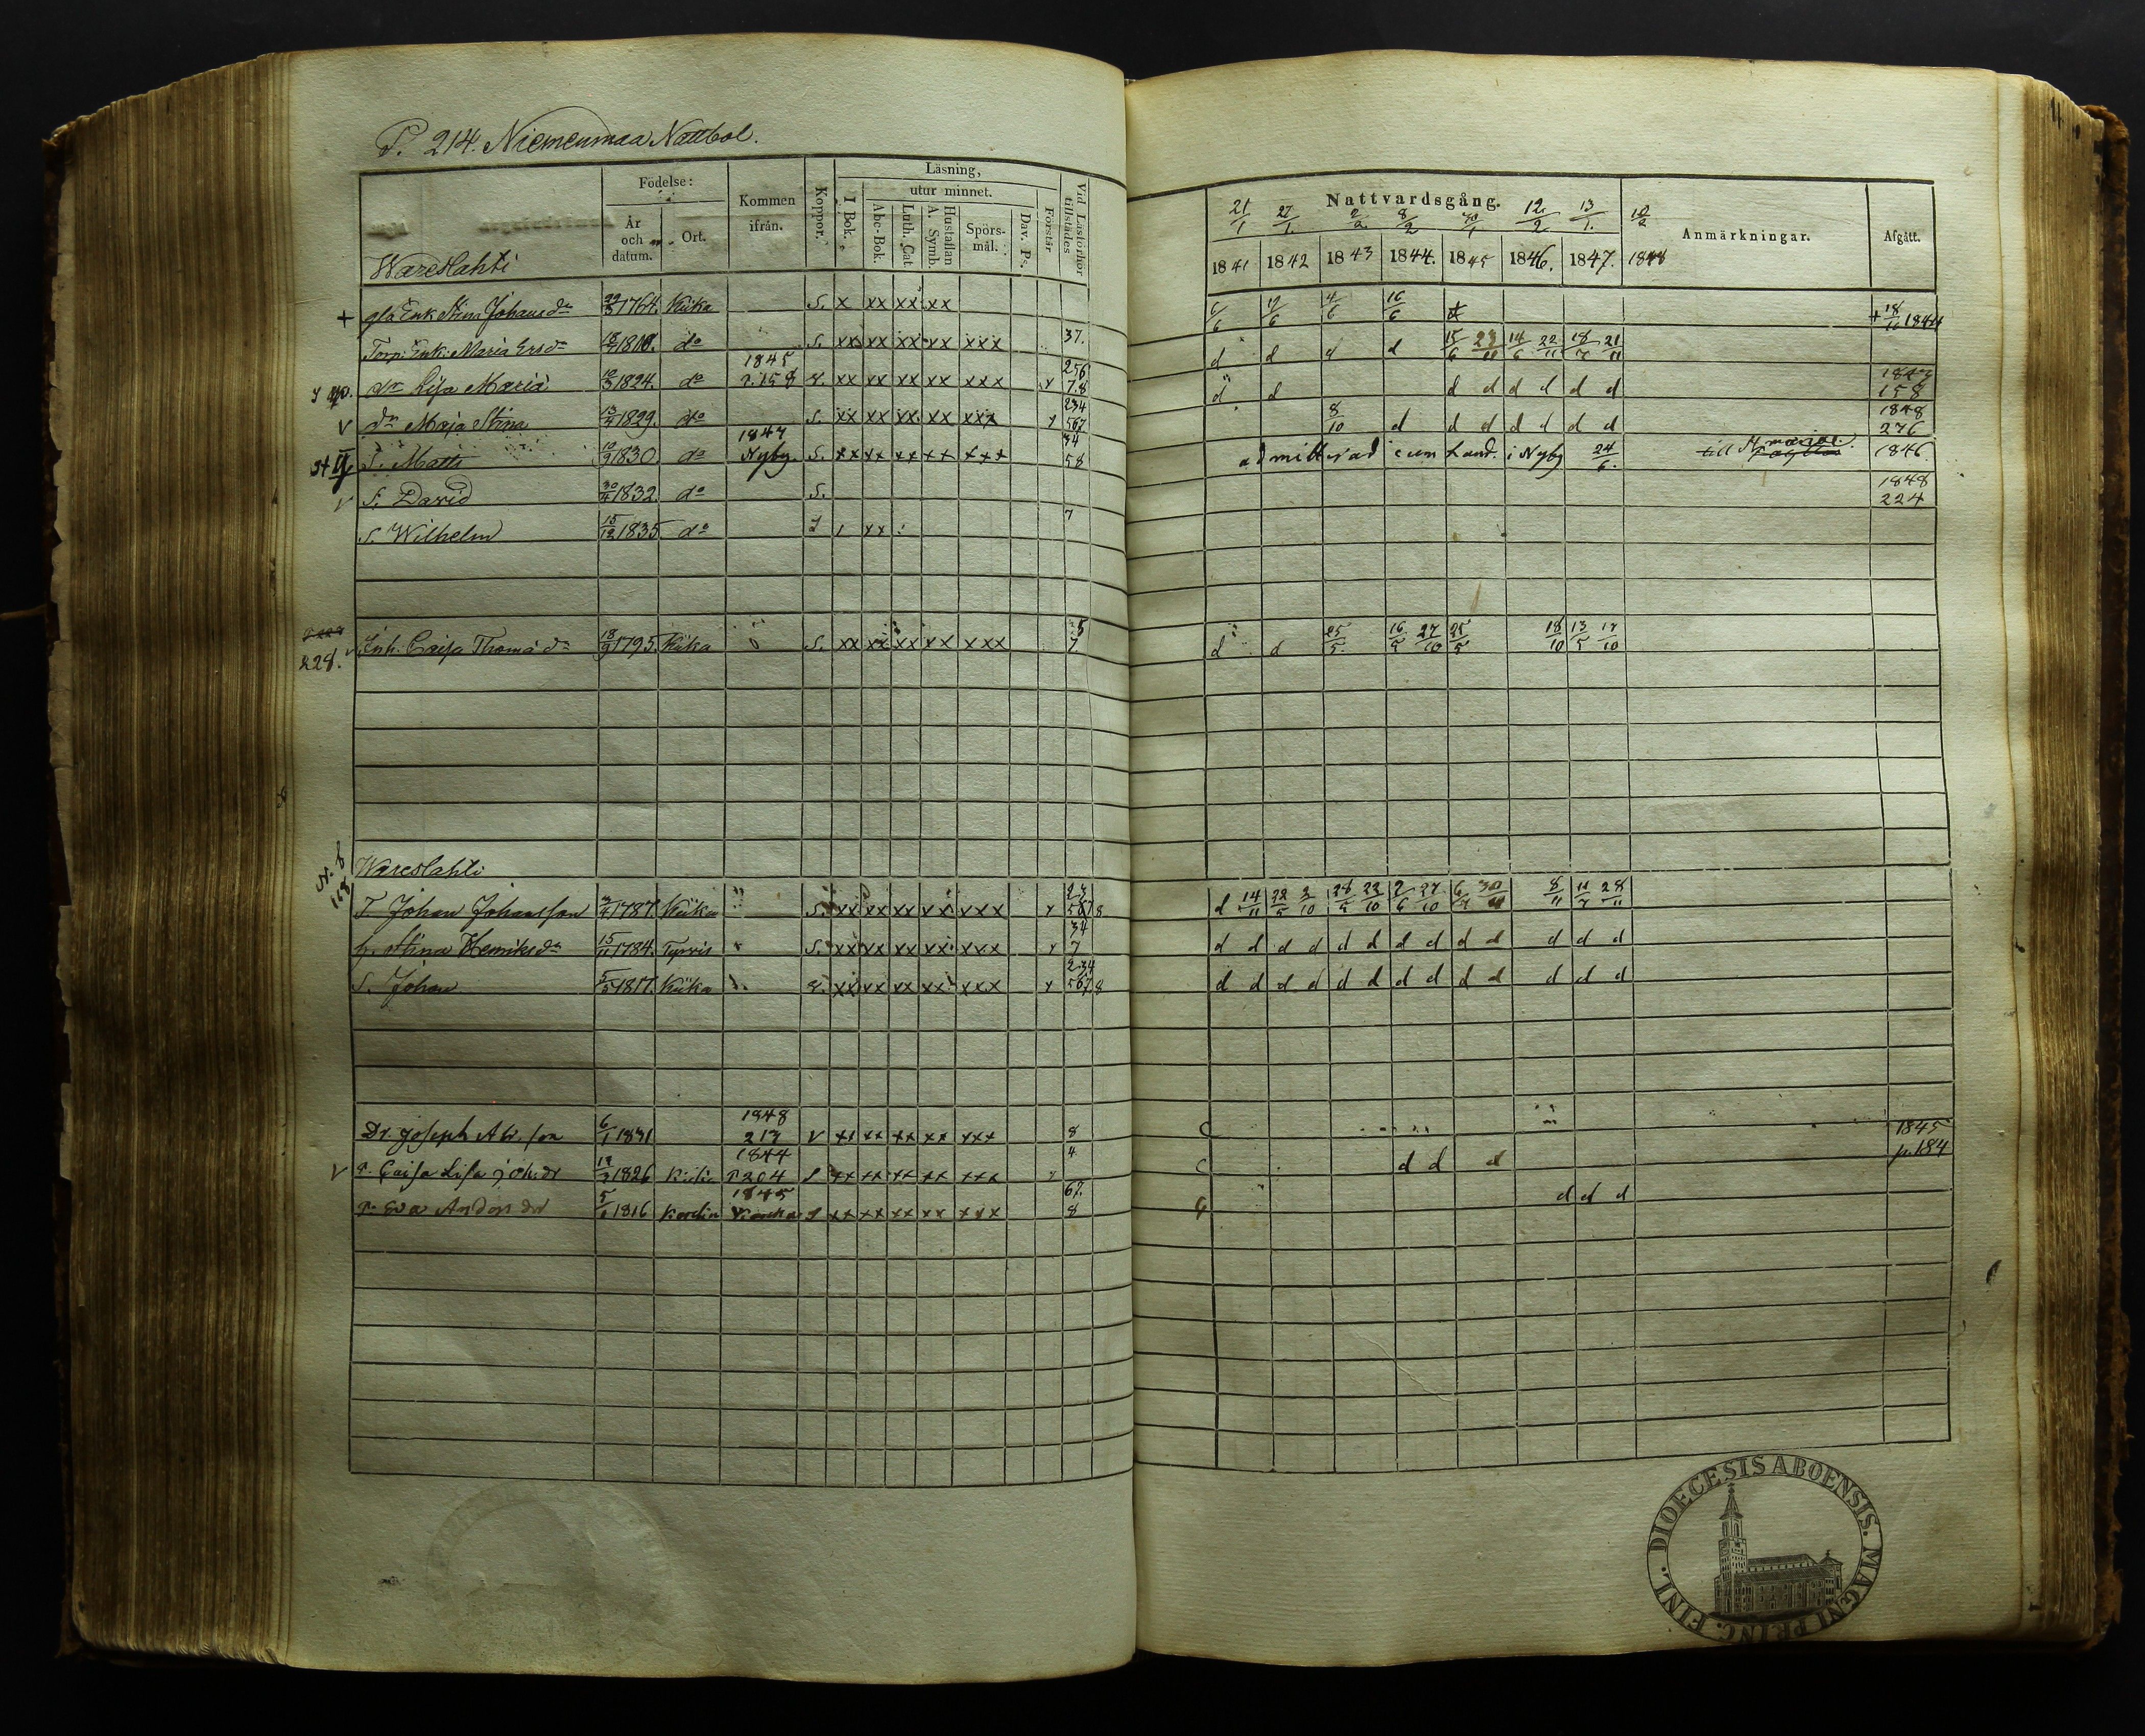 P. 214. Niemenmaa Nattbol.
Födelse: Kommen ifrån. Koppor. Läsning, Vid Läsförhör tillstädes
År och datum. Ort. I Bok. utur minnet. Förstår
Abc-Bok. Luth. Cat. Hustaflan A. Symb. Spörs-mål. Dav. Ps.
Wareslahti
+ gla Enk Stina Johansdr 22/3 1764. Kiika S. x xx xx xx
Torp: Enk: Maria Ersdr 1810. do S. xx xx xx xx xxx 37.
dr Lisa Maria 10/3 1824. do 1845 p. 158 xx xx xx xx xxx x 256 78
v dr Maja Stina 13/4 1829. do S. xx xx xx xx xxx 234 567
S. Matts 10/9 1830 do 1847 Nyby. S. xx xx xx xx xxx 34 58
v S. David 30/4 1832. do S.
S. Wilhelm 15/12 1835. do xx 7
228. Enk. Caisa Thomædr 18/9 1795. Kiika S. xx xx xx xx xxx 5 7
N. 8
158
Wareslahti
T. Johan Johansson 1787. Kiika S. xx xx xx xx xxx x 23 5678
h. Stina Henriksdr 15/11 1784. Tyrvis S. xx xx xx xx xxx x 34 7
S. Johan 5/5 1817. Kiika xx xx xx xx xxx x 234 5678
Dr. Joseph Abr. son 6/1 1831 1848 213 v xx xx xx xx xxx 8
v P. Caisa Lisa Joh. dr 1826 1844 P 204 xx xx xx xx xxx 4
P. Eva Anders dr 1816 1845 xx xx xx xx xxx 67. 8
Nattvardsgång. Anmärkningar. Afgått.
21/1 27/1. 2/2 8/2 12/2 13/1. 10/2
1841 1842 1843 1844. 1845 1846. 1847. 1848
6/6 12/6 4/6 16/6 + + 18/11 1844
d d d d 15/6 23/11 14/6 22/11 18/7 21/11
d d d d d d d d 1847 158
8/10 d d d d d d d 1848 276
admitterad i Nyby 24/6. till 1846
1848 224
d d 25/5 16/5 27/10 25/5 18/10 13/5 17/10
d 14/11 22/5 2/10 28/5 22/10 2/6 27/10 6/7 30/11 8/11 11/7 28/11
d d d d d d d d d d d d d
d d d d d d d d d d d d d
1845
d d d p. 184
d d d
DIOECESIS ABOENSIS. MAGNI PRINC. FINL.